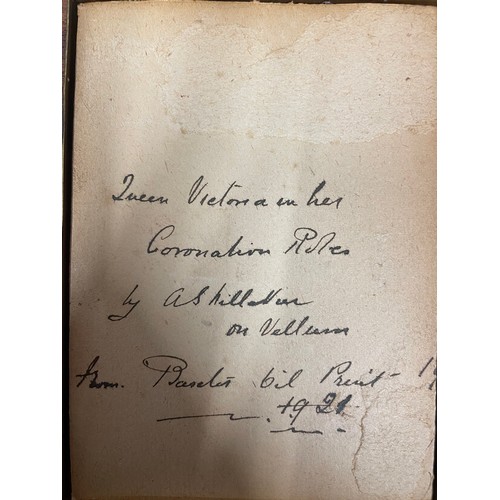 Queen Victoria in her
Coronation Robes
by A S
on Vellum
from. Oil Print 19
1921